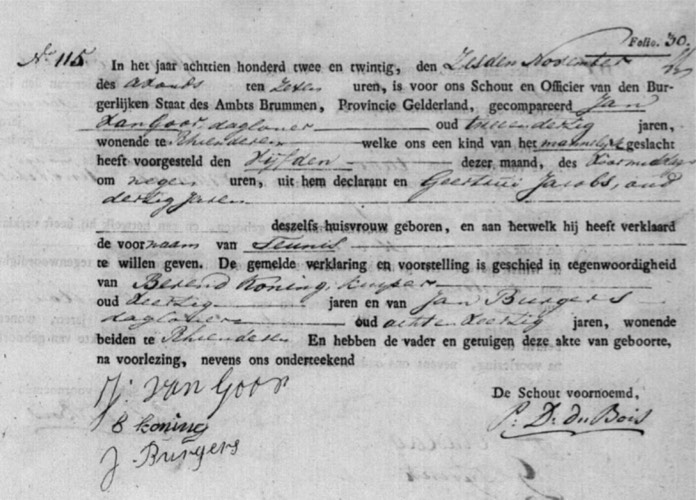 Folio. 30.
No 115 In het jaar achttien honderd twee en twintig, den Zesden November
des Avonds ten Zeven uren, is voor ons Schout en Officier van den Bur-
gerlijken Staat des Ambts Brummen, Provincie Gelderland, gecompareerd Jan
van Goor, dagloner oud twee en dertig jaren,
wonende te Rhienderen welke ons een kind van het mannelyk geslacht
heeft voorgesteld den Vijfden dezer maand, des voormiddags
om negen uren, uit hem declarant en Geertrui Jacobs, oud
dertig jaren
deszelfs huisvrouw geboren, en aan hetwelk hij heeft verklaard
de voornaam van Teunis
te willen geven. De gemelde verklaring en voorstelling is geschied in tegenwoordigheid
van Berend Koning, kuyper
oud Veertig jaren en van Jan Burgers
dagloner oud acht en veertig jaren, wonende
beiden te Rhienderen En hebben de vader en getuigen deze akte van geboorte,
na voorlezing, nevens ons onderteekend
J: van Goor
B koning
J Burgers
De Schout voornoemd,
P. D. du Bois